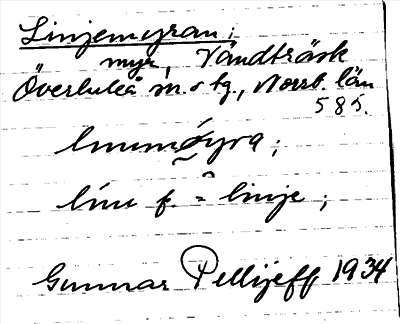 Linjemyran;
myr, Vändträsk
Överluleå sn. o tg., Norrb. län
585.
línu f. = linje;
Gunnar Pellijeff 1934